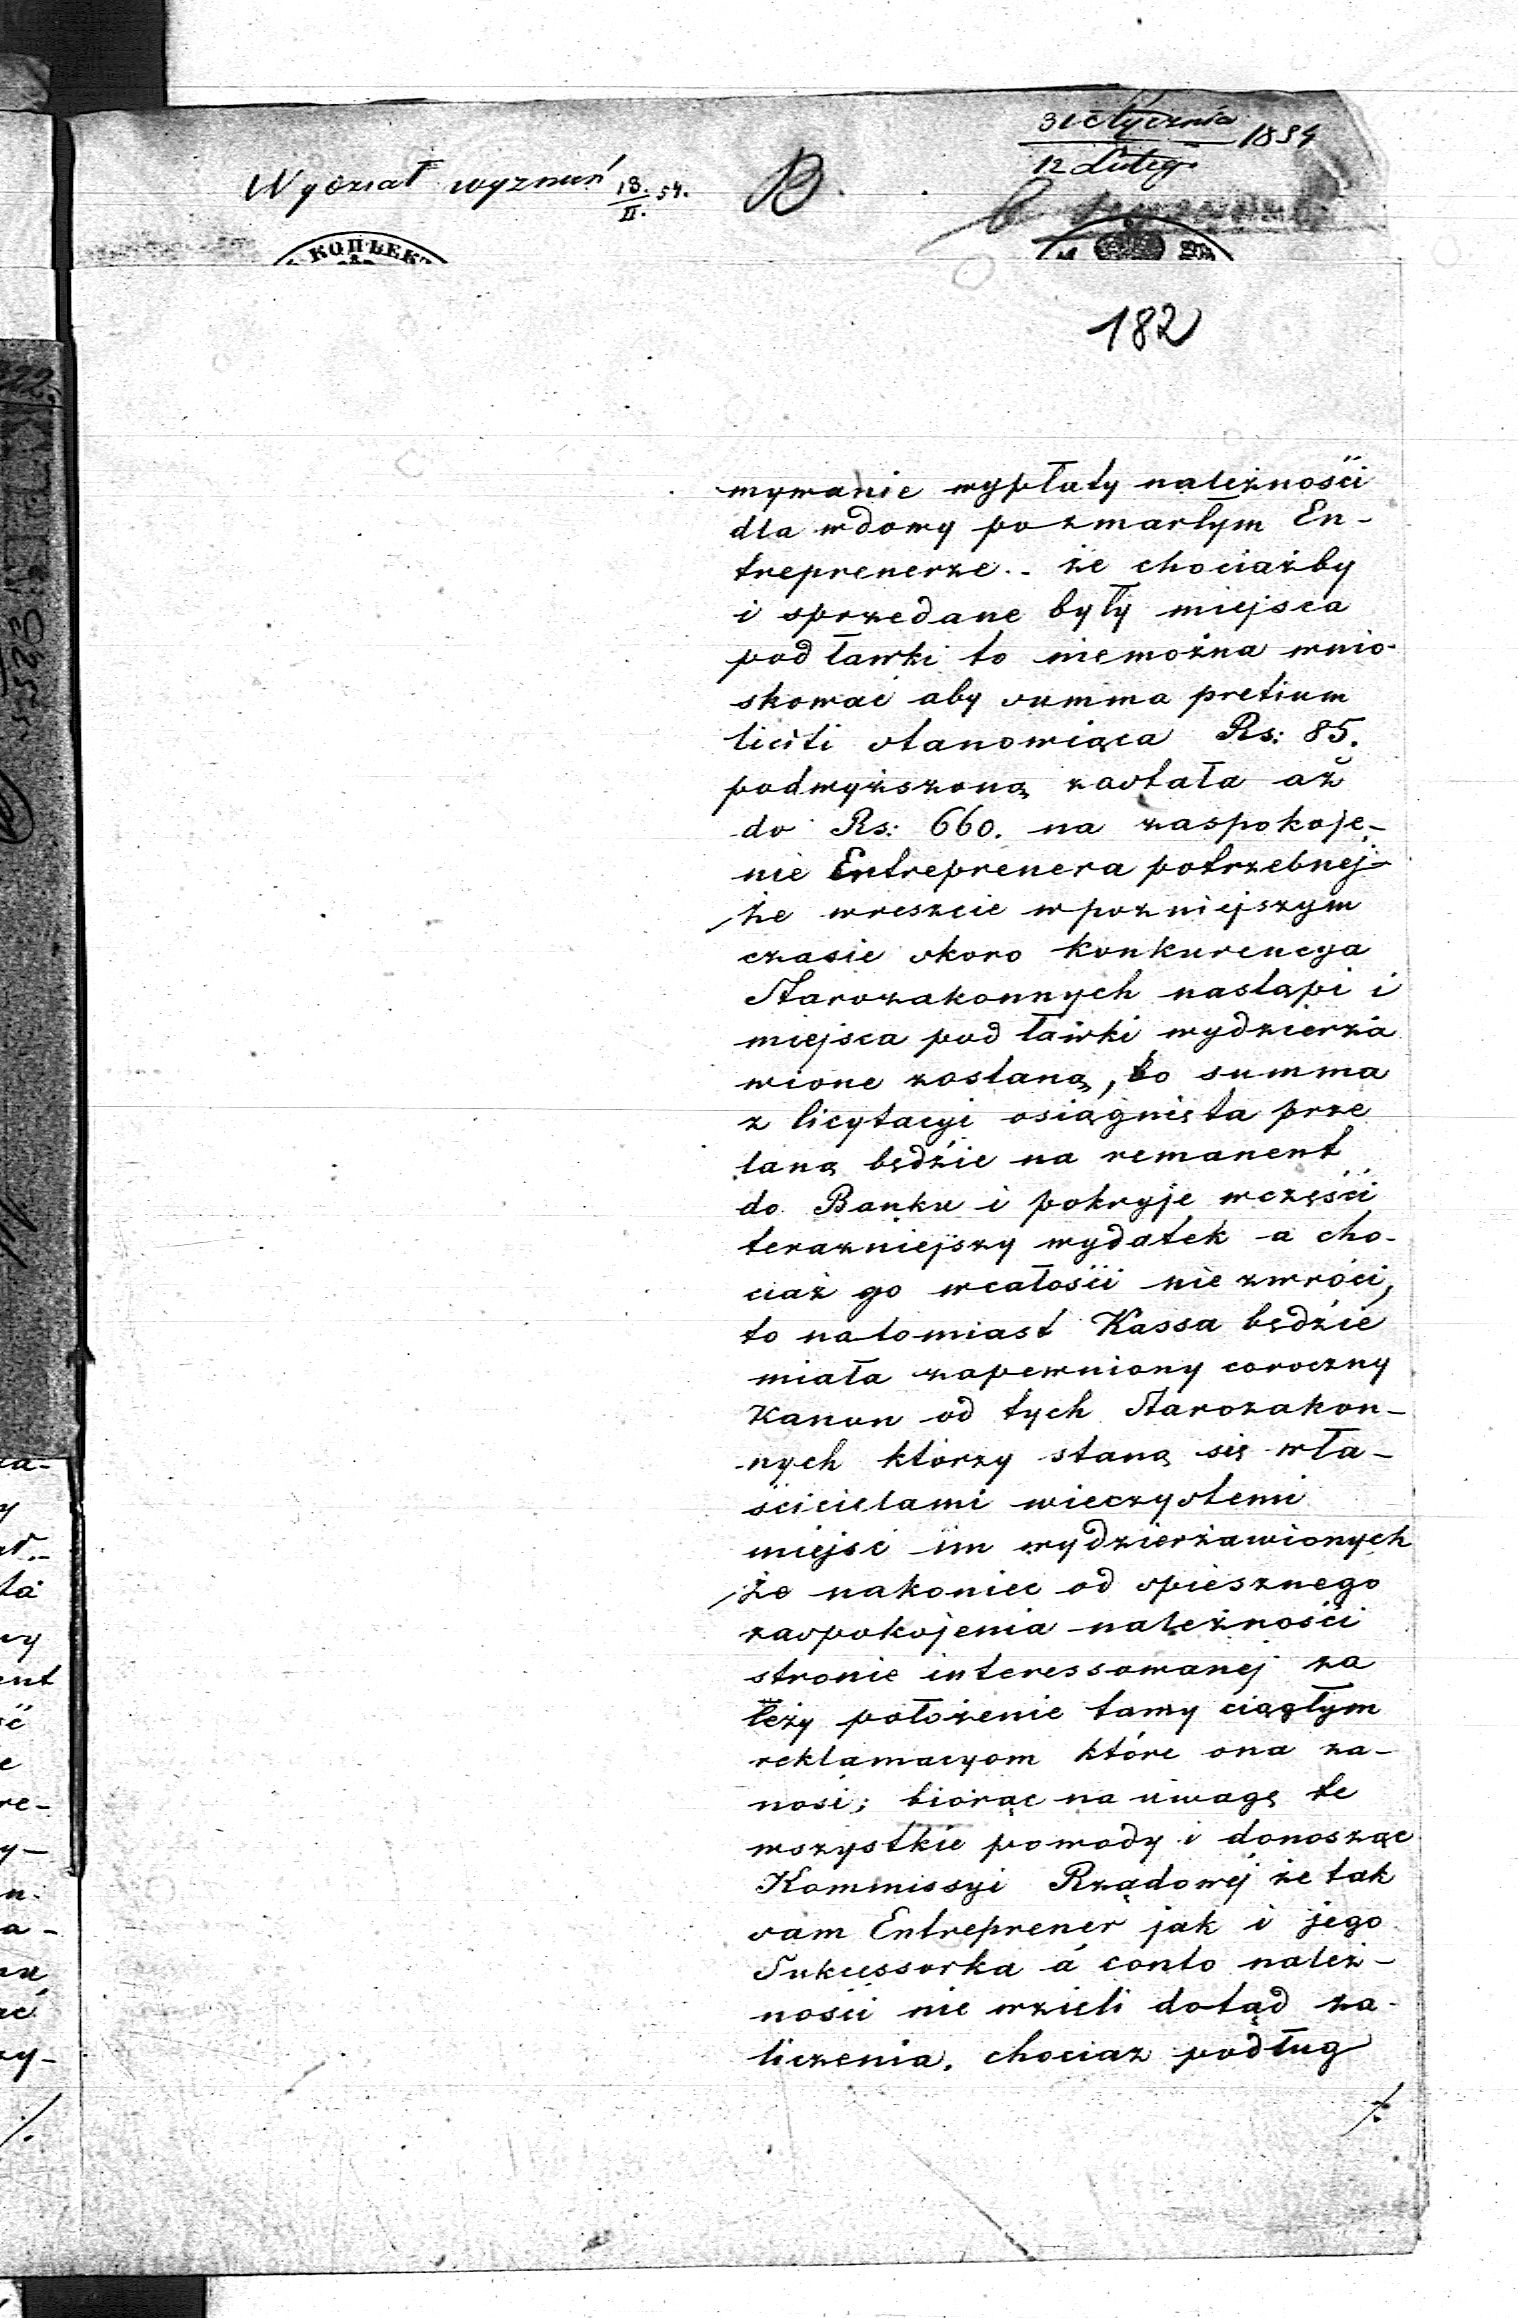 31 Stycznia 1854
12 Lutego
Wydział wyznań 13./II. 54. B.
КОПѢЕК
182
mywanie wypłaty należności
dla wdowy po zmarłym En-
treprenerze.. że chociażby
i sprzedane były miejsca
pod ławki to niemożna wnio-
skować aby summa pretium
liciti stanowiąca Rs: 85.
podwyższoną została aż
do Rs: 660. na zaspokoje-
nie Entreprenera potrzebnej-
że wreszcie w pozniejszym
czasie skoro konkurencya
Starozakonnych nastąpi i
miejsca pod ławki wydzierża
wione zostaną, to summa
z licytacyi osiągnięta prze
laną będzie na remanent
do Banku i pokryje w części
terazniejszy wydatek a cho-
ciaż go w całości nie zwróci,
to natomiast Kassa będzie
miała zapewniony coroczny
Kanon od tych Starozakon-
nych którzy staną się wła-
ścicielami wieczystemi
miejsc im wydzierżawionych
że nakoniec od spiesznego
zaspokojenia należności
stronie interessowanej za
leży położenie tamy ciągłym
reklamacyom które ona za-
nosi; biorąc na uwagę te
wszystkie powody i donosząc
Kommissyi Rządowej że tak
sam Entreprener jak i jego
Sukcessorka á conto należ-
ności nie wzieli dotąd za-
liczenia. chociaz podług
./.